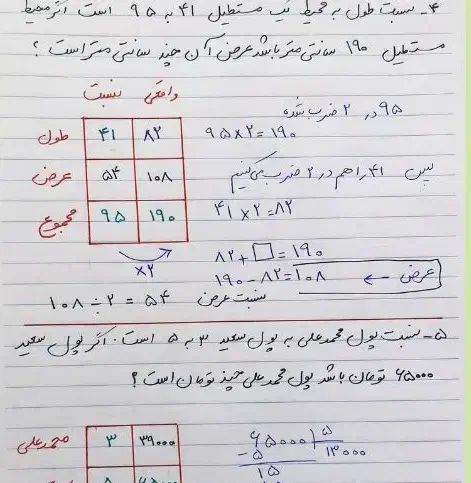 ۴- نسبت طول به محیط یک مستطیل ۴۱ به ۹۵ است اگر محیط
مستطیل ۱۹۰ سانتی متر باشد عرض آن چند سانتی متر است ؟
نسبت واقعی
طول ۴۱ ۸۲
عرض ۵۴ ۱۰۸
مجموع ۹۵ ۱۹۰
×۲
۹۵ در ۲ ضرب شده
۹۵×۲=۱۹۰
پس ۴۱ را هم در ۲ ضرب می کنیم
۴۱×۲=۸۲
۸۲+□=۱۹۰
۱۹۰-۸۲=۱۰۸ → عرض
۱۰۸÷۲=۵۴ نسبت عرض
۵- نسبت پول محمدعلی به پول سعید ۳ به ۵ است. اگر پول سعید
۶۵۰۰۰ تومان باشد پول محمدعلی چند تومان است ؟
محمدعلی ۳ ۳۹۰۰۰
۶۵۰۰۰ ۵
-۵ ۱۳۰۰۰
۱۵